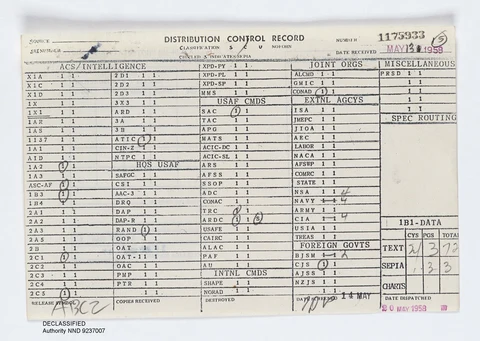 DISTRIBUTION CONTROL RECORD
NUMBER 1175933
CLASSIFICATION S C U
DATE RECEIVED MAY 1958
ACS/INTELLIGENCE XPD-PY 1 1 JOINT ORGS MISCELLANEOUS
X1A 1 1 2D1 1 1 XPD-PL 1 1 ALCHD 1 1 PRSD 1 1
X1C 1 1 2D2 1 1 XPD-SP 1 1 GMIC 1 1 1 1
X1D 1 1 2D3 1 1 MMS 1 1 CONAD 1 1 1 1
1X 1 1 3X3 1 1 USAF CMDS EXTNL AGCYS 1 1
1X1 1 1 ARD 1 1 SAC 1 1 ISA 1 1 SPEC ROUTING
1AH 1 1 3A 1 1 TAC 1 1 JMEPC 1 1
1AS 1 1 3B 1 1 APG 1 1 JIOA 1 1
1137 1 1 ATIC 1 1 MATS 1 1 AEC 1 1
1A1 1 1 CIN-Z 1 1 ACIC-DC 1 1 LABOR 1 1
AID 1 1 NTPC 1 1 ACIC-SL 1 1 NACA 1 1
1A2 1 1 HQS USAF ARS 1 1 AFSWP 1 1
1A3 1 1 SAFGC 1 1 AFSS 1 1 COMRC 1 1
ASC-AF 1 1 CSI 1 1 SSOP 1 1 STATE 1 1
1B3 1 1 AAC-3 1 1 ADC 1 1 NSA 4
1B4 1 1 DRQ 1 1 CONAC 1 1 NAVY 4
2A1 1 1 DAP 1 1 TRC 1 1 ARMY 1 1 1B1-DATA
2A2 1 1 DAP-R 1 1 ARDC 1 1 5 CIA 4 CYS PGS TOTAL
2A3 1 1 RAND 1 1 USAFE 1 1 USIA 1 1
2A5 1 1 OOP 1 1 CAIRC 1 1 TREAS 1 1 TEXT
2B 1 1 OAT 1 1 ALAC 1 1 FOREIGN GOVTS
2C1 1 1 OAT-1 1 1 PAF 1 1 BJSM 2 SEPIA 3 3
2C2 1 1 OAC 1 1 AU 1 1 CJS 1 1
2C3 1 1 PMP 1 1 INTNL CMDS AJSS 1 1 CHARTS
2C4 1 1 PTR 1 1 SHAPE 1 1 NZJS 1 1
2C5 1 1 1 1 NORAD 1 1 1 1 DATE DISPATCHED
RELEASE SYMBOL COPIES RECEIVED DESTROYED 14 MAY 20 MAY 1958
ABC2
DECLASSIFIED
Authority NND 9237007